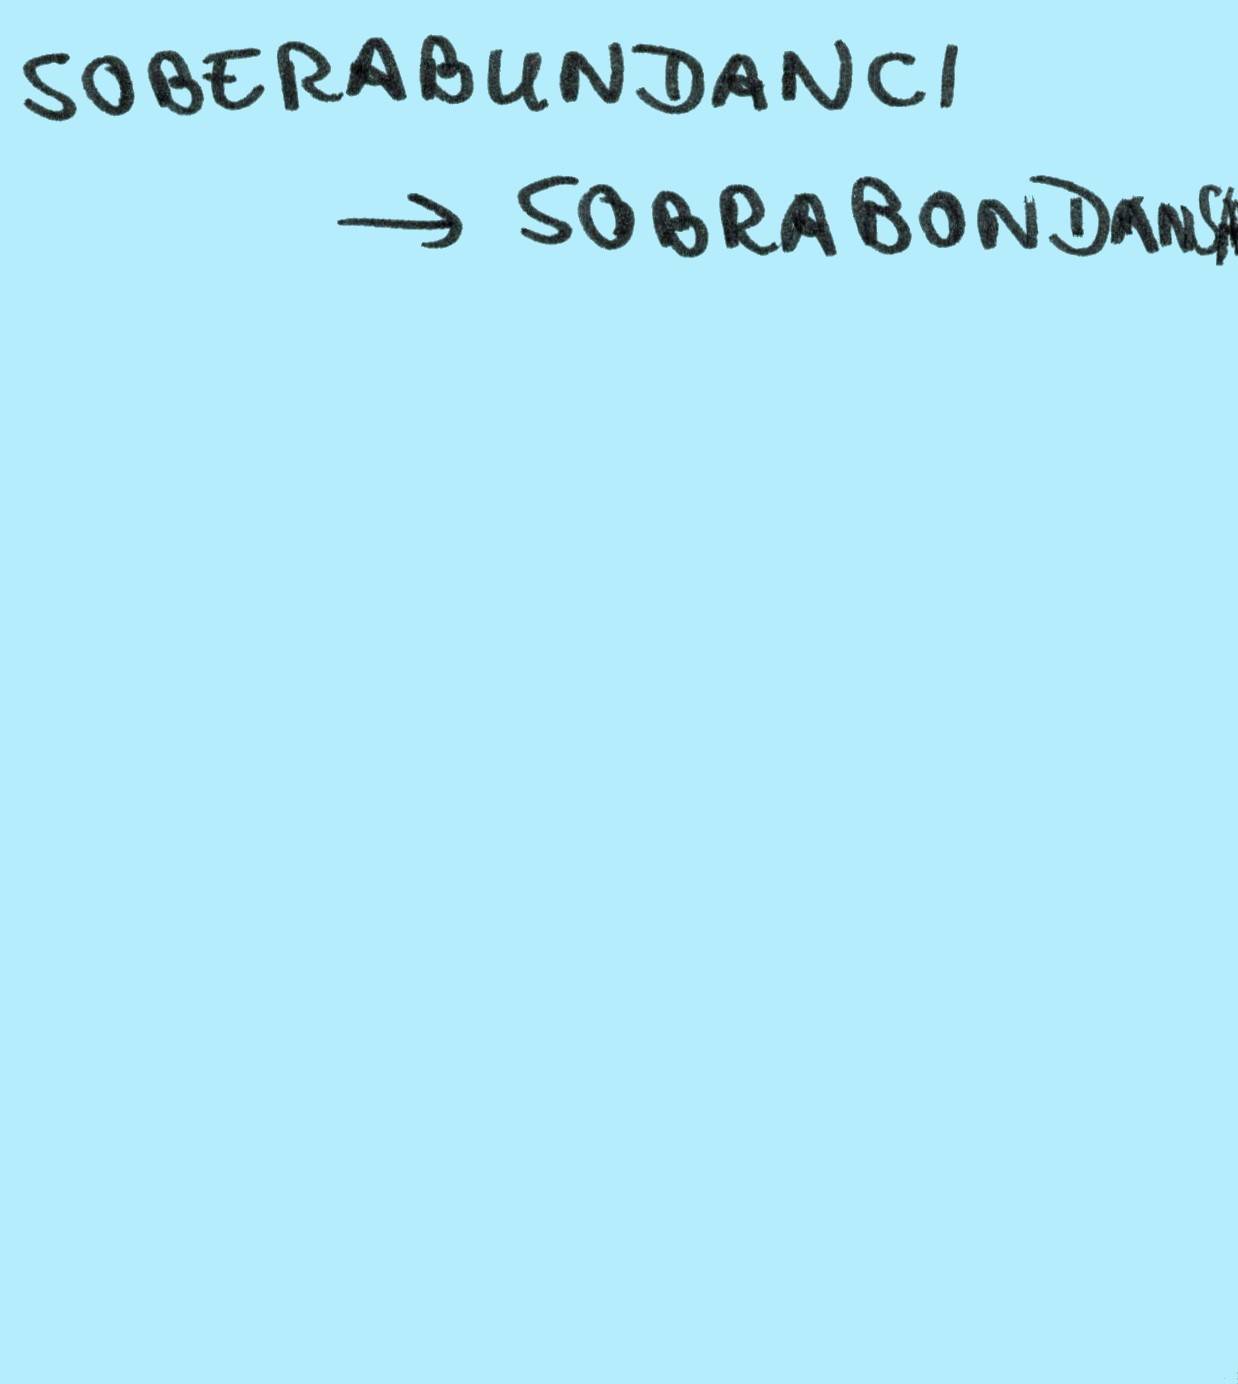 SOBERABUNDANCI
→ SOBRABONDANSA